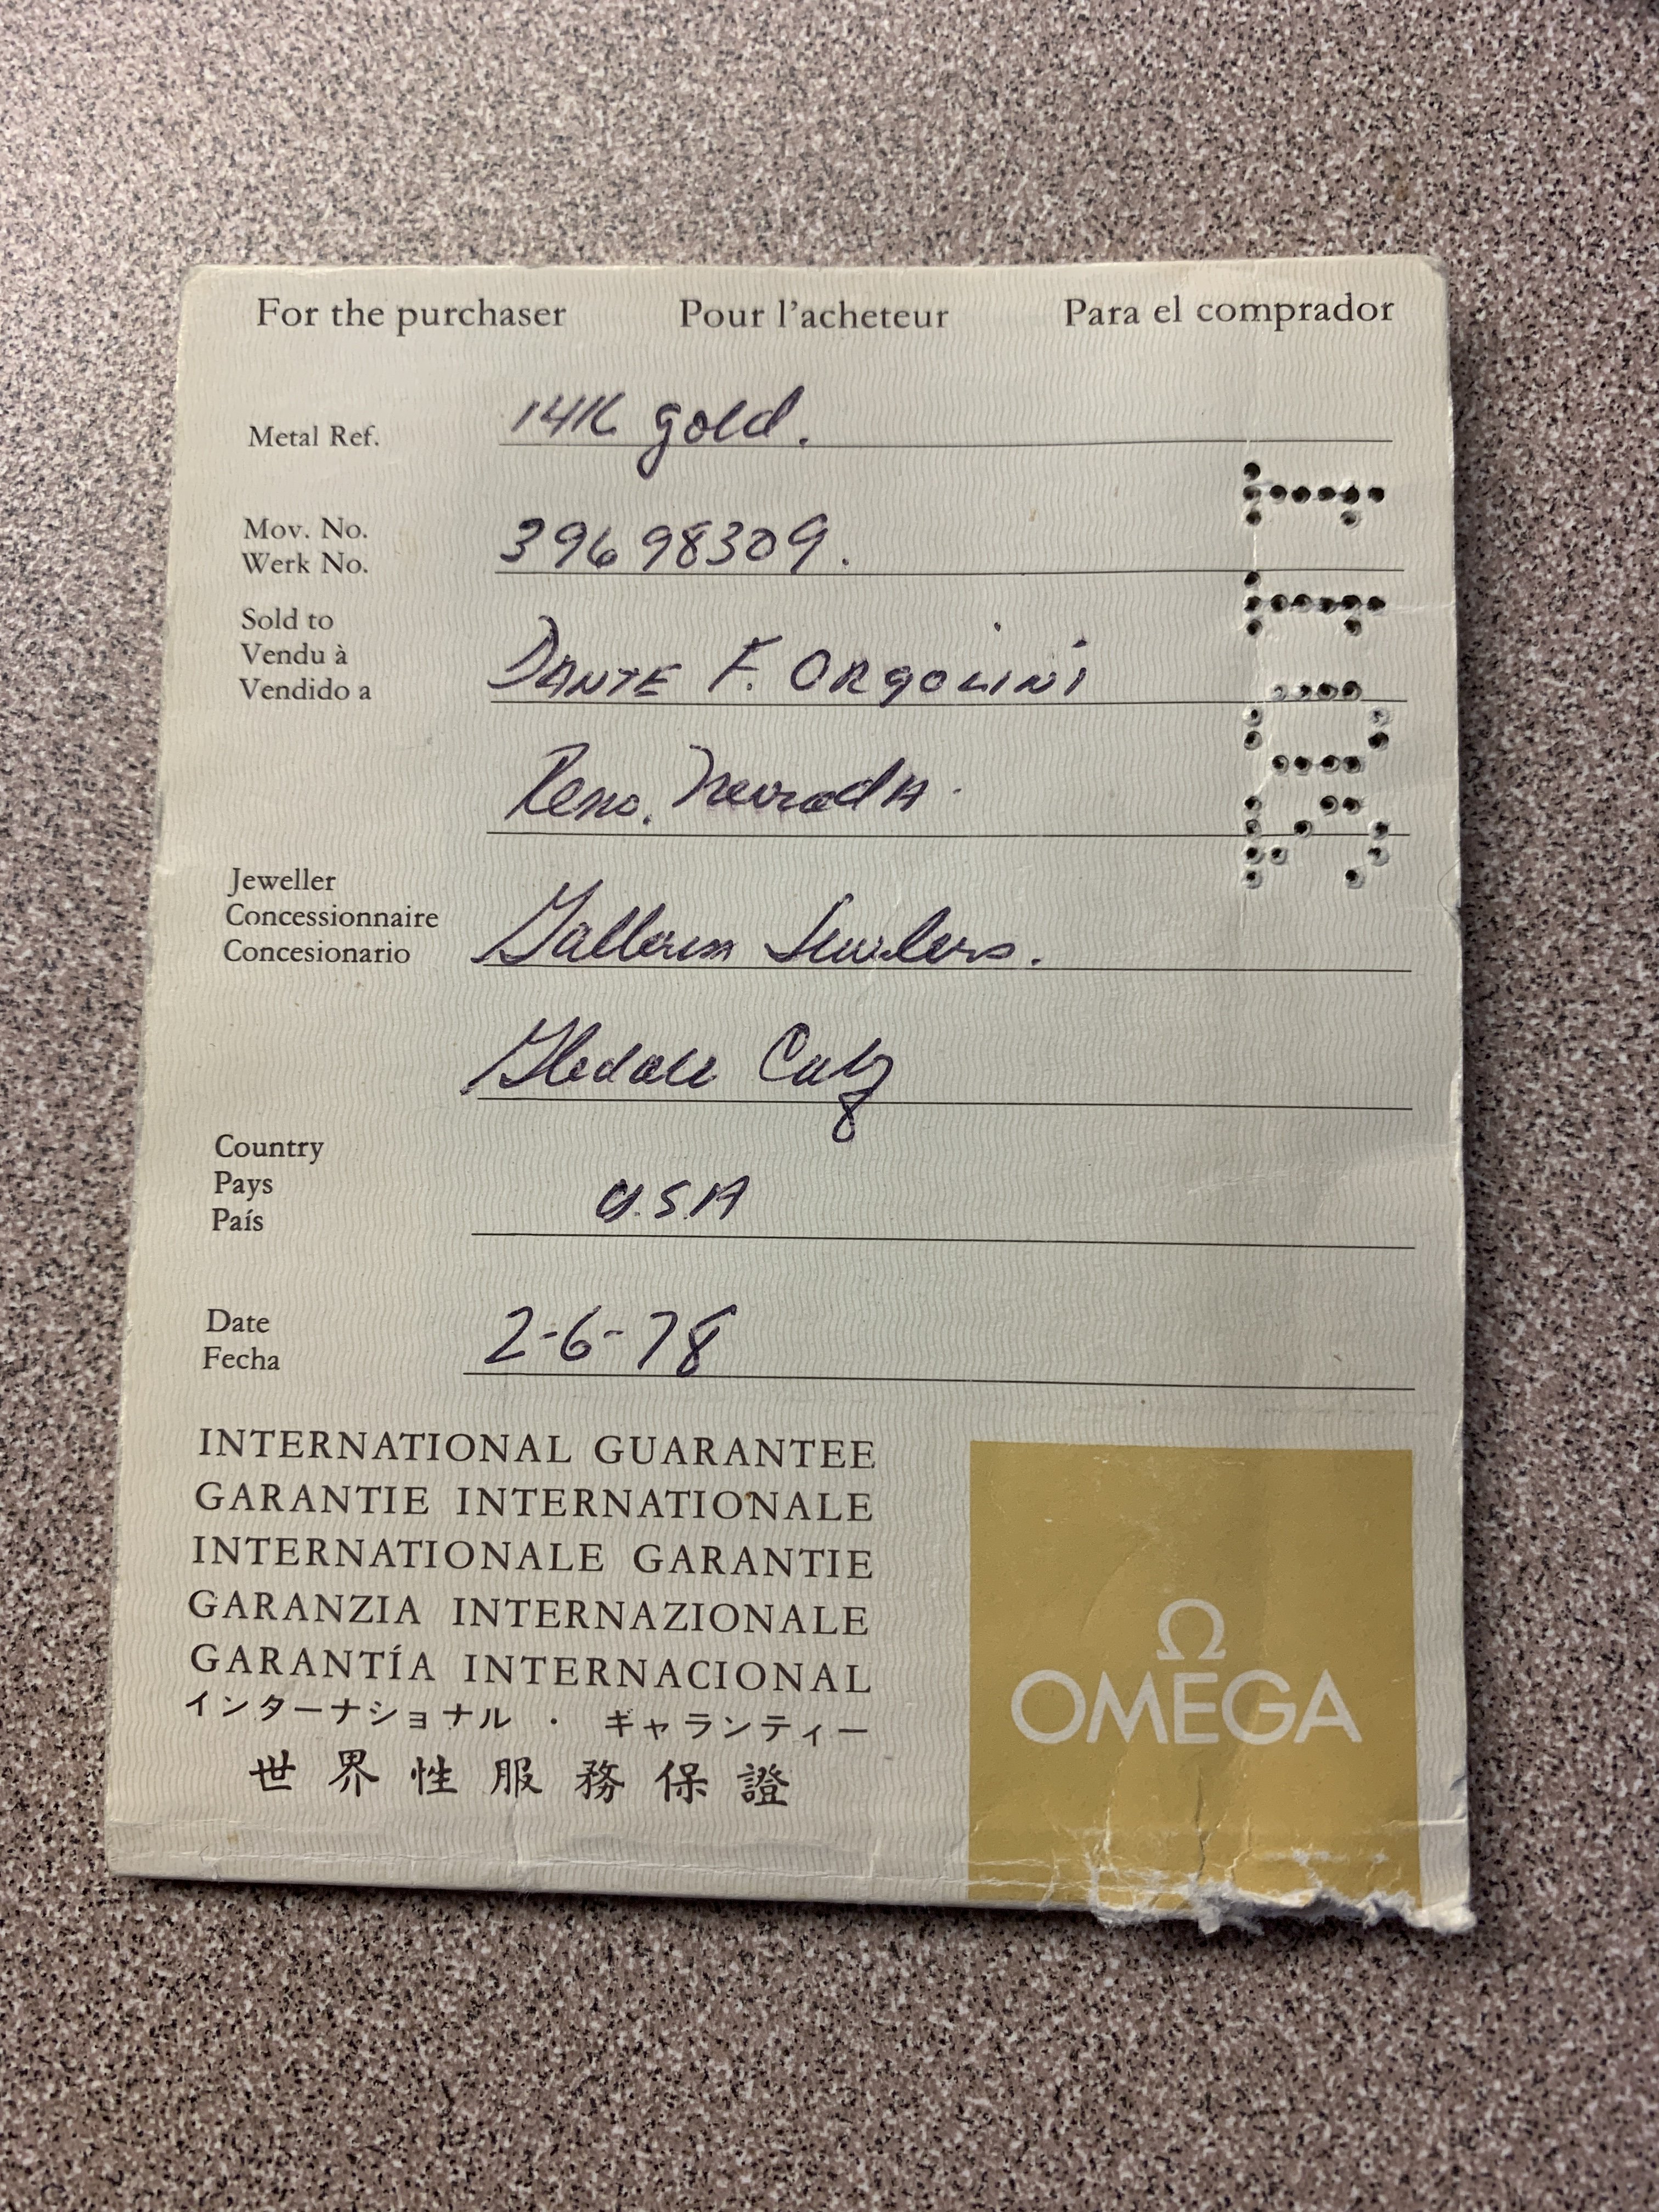 For the purchaser Pour l'acheteur Para el comprador
Metal Ref. 14K gold.
Mov. No.
Werk No. 39698309.
Sold to
Vendu à
Vendido a DANTE F. ORGOLINI
Reno. Nevada.
Jeweller
Concessionnaire
Concesionario Jewelers.
Country
Pays
País U.S.A
Date
Fecha 2-6-78
INTERNATIONAL GUARANTEE
GARANTIE INTERNATIONALE
INTERNATIONALE GARANTIE
GARANZIA INTERNAZIONALE
GARANTÍA INTERNACIONAL
インターナショナル・ギャランティー
世界性服務保證
Ω
OMEGA